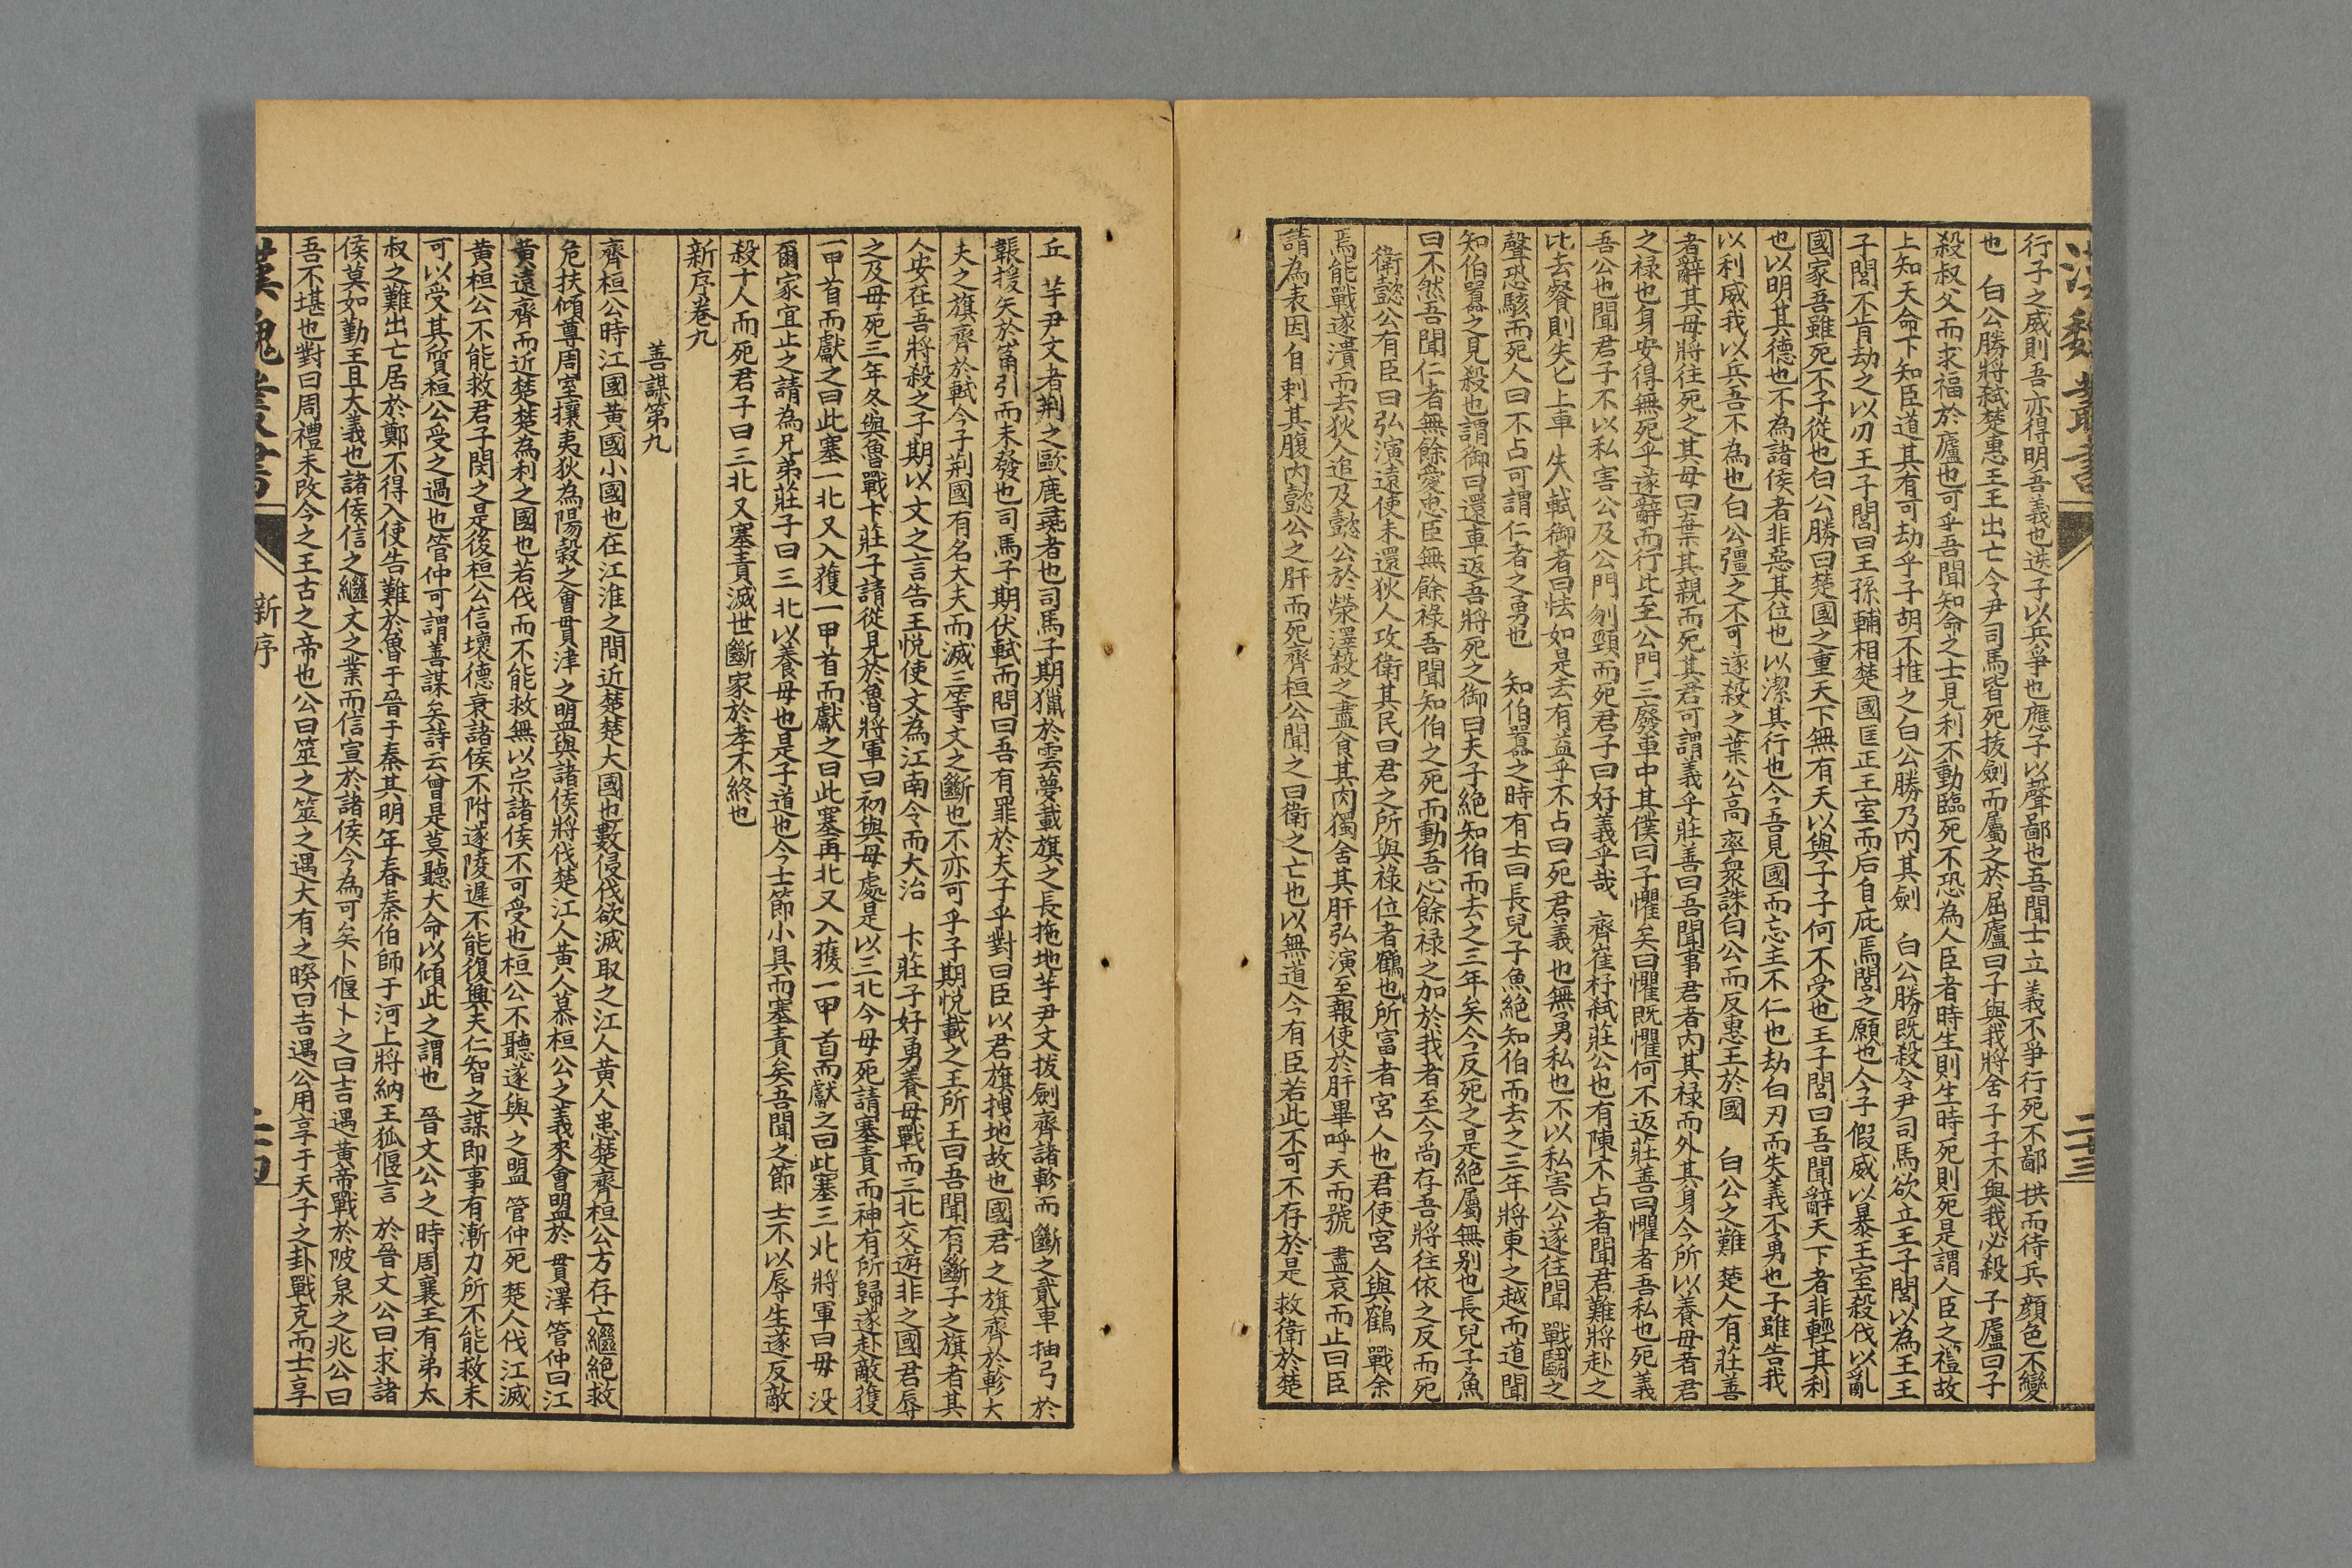 行子之威則吾亦得明吾義也逆子以兵爭也應子以聲鄙也吾聞士立義不爭行死不鄙拱而待兵顔色不變
也　白公勝將弑楚惠王王出亡令尹司馬皆死拔劍而屬之於屈廬曰子與我將舍子子不與我必殺子廬曰子
殺叔父而求福於廬也可乎吾聞知命之士見利不動臨死不恐為人臣者時生則生時死則死是謂人臣之禮故
上知天命下知臣道其有可劫乎子胡不推之白公勝乃内其劍　白公勝既殺令尹司馬欲立王子閭以為王王
子閭不肯劫之以刃王子閭曰王孫輔相楚國匡正王室而后自庇焉閭之願也今子假威以暴王室殺伐以亂
國家吾雖死不子從也白公勝曰楚國之重天下無有天以與子子何不受也王子閭曰吾聞辭天下者非輕其利
也以明其德也不為諸侯者非惡其位也以潔其行也今吾見國而忘主不仁也劫白刃而失義不勇也子雖告我
以利威我以兵吾不為也白公彊之不可遂殺之葉公高率衆誅白公而反惠王於國　白公之難楚人有莊善
者辭其母將往死之其母曰棄其親而死其君可謂義乎莊善曰吾聞事君者内其禄而外其身今所以養母者君
之禄也身安得無死乎遂辭而行比至公門三廢車中其僕曰子懼矣曰懼既懼何不返莊善曰懼者吾私也死義
吾公也聞君子不以私害公及公門刎頸而死君子曰好義乎哉　齊崔杼弑莊公也有陳不占者聞君難將赴之
比去餐則失匕上車失軾御者曰怯如是去有益乎不占曰死君義也無勇私也不以私害公遂往聞戰鬭之
聲恐駭而死人曰不占可謂仁者之勇也　知伯嚚之時有士曰長兒子魚絶知伯而去之三年將東之越而道聞
知伯嚚之見殺也謂御曰還車返吾將死之御曰夫子絶知伯而去之三年矣今反死之是絶屬無别也長兒子魚
曰不然吾聞仁者無餘愛忠臣無餘祿吾聞知伯之死而動吾心餘禄之加於我者至今尚存吾將往依之反而死
衛懿公有臣曰弘演遠使未還狄人攻衛其民曰君之所與祿位者鶴也所富者宮人也君使宮人與鶴戰余
焉能戰遂潰而去狄人追及懿公於榮澤殺之盡食其肉獨舍其肝弘演至報使於肝畢呼天而號盡哀而止曰臣
請為表因自刺其腹内懿公之肝而死齊桓公聞之曰衛之亡也以無道今有臣若此不可不存於是救衛於楚
丘　芋尹文者荆之歐鹿彘者也司馬子期獵於雲夢載旗之長拖地芋尹文拔劍齊諸軫而斷之貳車抽弓於
韔援矢於箙引而未發也司馬子期伏軾而問曰吾有罪於夫子乎對曰臣以君旗拽地故也國君之旗齊於軫大
夫之旗齊於軾今子荆國有名大夫而滅三等文之斷也不亦可乎子期悦載之王所王曰吾聞有斷子之旗者其
人安在吾將殺之子期以文之言告王悦使文為江南令而大治　卞莊子好勇養母戰而三北交遊非之國君辱
之及母死三年冬與魯戰卞莊子請從見於魯將軍曰初與母處是以三北今母死請塞責而神有所歸遂赴敵獲
一甲首而獻之曰此塞一北又入獲一甲首而獻之曰此塞再北又入獲一甲首而獻之曰此塞三北將軍曰毋没
爾家宜止之請為兄弟莊子曰三北以養母也是子道也今士節小具而塞責矣吾聞之節士不以辱生遂反敵
殺十人而死君子曰三北又塞責滅世斷家於孝不終也
新序卷九
善謀第九
齊桓公時江國黄國小國也在江淮之間近楚楚大國也數侵伐欲滅取之江人黄人患楚齊桓公方存亡繼絶救
危扶傾尊周室攘夷狄為陽穀之會貫津之盟與諸侯將伐楚江人黄人慕桓公之義來會盟於貫澤管仲曰江
黄遠齊而近楚楚為利之國也若伐而不能救無以宗諸侯不可受也桓公不聽遂與之盟管仲死楚人伐江滅
黄桓公不能救君子閔之是後桓公信壞德衰諸侯不附遂陵遲不能復興夫仁智之謀即事有漸力所不能救未
可以受其質桓公受之過也管仲可謂善謀矣詩云曾是莫聽大命以傾此之謂也　晉文公之時周襄王有弟太
叔之難出亡居於鄭不得入使告難於魯于晉于秦其明年春秦伯師于河上將納王狐偃言於晉文公曰求諸
侯莫如勤王且大義也諸侯信之繼文之業而信宣於諸侯今為可矣卜偃卜之曰吉遇黄帝戰於阪泉之兆公曰
吾不堪也對曰周禮未改今之王古之帝也公曰筮之筮之遇大有之暌曰吉遇公用享于天子之卦戰克而士享
漢魏叢書
新序